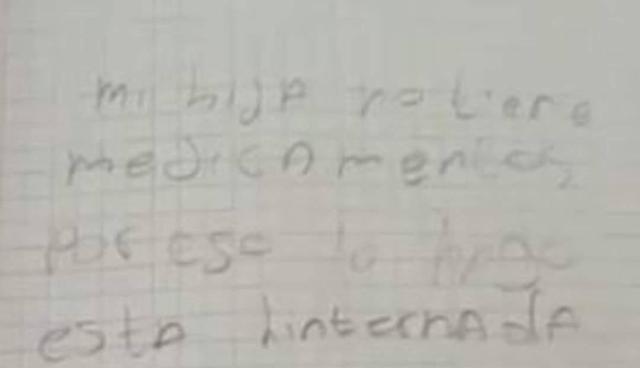 mi hija no tiene
medicamentos,
por eso lo hago
esta hinternada